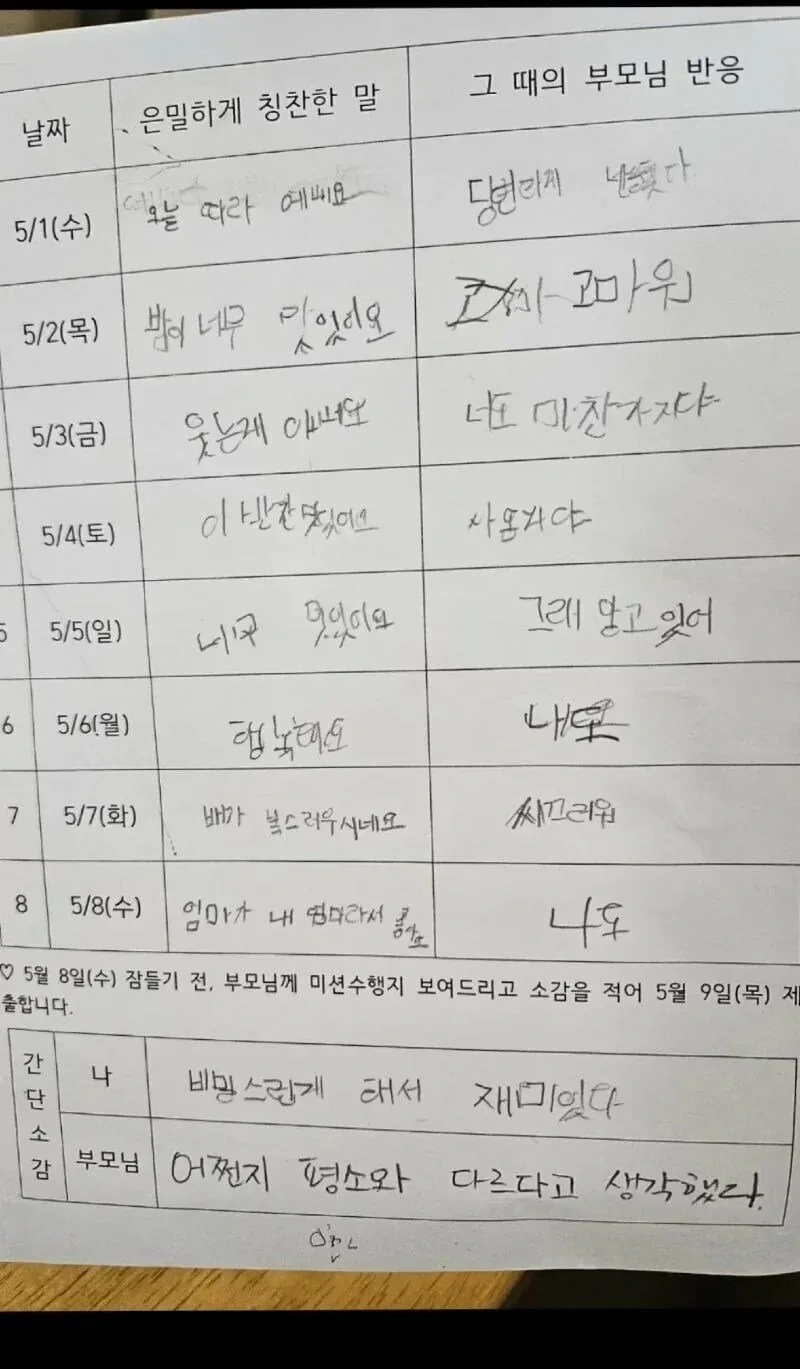 날짜 은밀하게 칭찬한 말 그 때의 부모님 반응
5/1(수) 오늘 따라 예뻐요
5/2(목) 밥이 너무 맛있어요 고마워
5/3(금) 웃는게 너도 마찬가지다
5/4(토) 이 반찬 맛있어요
5 5/5(일) 그래 알고 있어
6 5/6(월) 행복해요 내도
7 5/7(화) 배가 복스러우시네요 씨끄러워
8 5/8(수) 엄마가 내 엄마라서 좋아요 나도
♡ 5월 8일(수) 잠들기 전, 부모님께 미션수행지 보여드리고 소감을 적어 5월 9일(목) 제
출합니다.
간단소감
나 비밍스럽게 해서 재미있다
부모님 어쩐지 평소와 다르다고 생각했다.